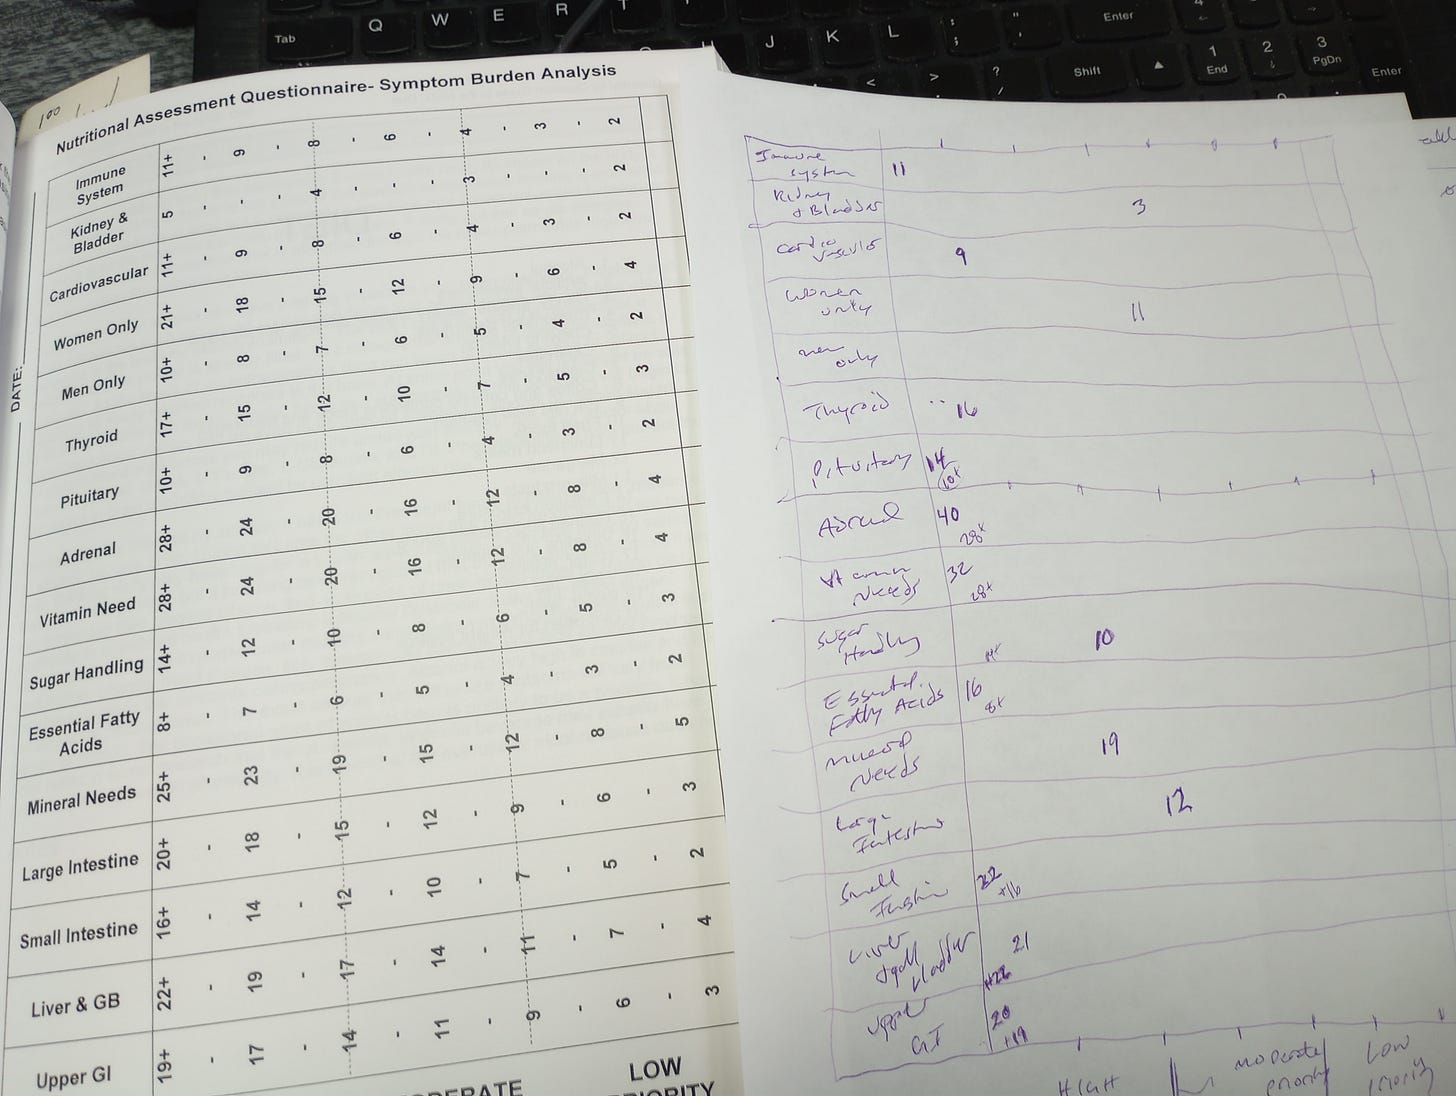 Tab Q W E R T
J K L ; : " ' Enter
< > ? / Shift 1 End 2 3 PgDn Enter
100
Nutritional Assessment Questionnaire- Symptom Burden Analysis
DATE:
Immune System 11+ - 9 - 8 - 6 - 4 - 3 - 2
Kidney & Bladder 5 - - - 4 - - - 3 - - - 2
Cardiovascular 11+ - 9 - 8 - 6 - 4 - 3 - 2
Women Only 21+ - 18 - 15 - 12 - 9 - 6 - 4
Men Only 10+ - 8 - 7 - 6 - 5 - 4 - 2
Thyroid 17+ - 15 - 12 - 10 - 7 - 5 - 3
Pituitary 10+ - 9 - 8 - 6 - 4 - 3 - 2
Adrenal 28+ - 24 - 20 - 16 - 12 - 8 - 4
Vitamin Need 28+ - 24 - 20 - 16 - 12 - 8 - 4
Sugar Handling 14+ - 12 - 10 - 8 - 6 - 5 - 3
Essential Fatty Acids 8+ - 7 - 6 - 5 - 4 - 3 - 2
Mineral Needs 25+ - 23 - 19 - 15 - 12 - 8 - 5
Large Intestine 20+ - 18 - 15 - 12 - 9 - 6 - 3
Small Intestine 16+ - 14 - 12 - 10 - 7 - 5 - 2
Liver & GB 22+ - 19 - 17 - 14 - 11 - 7 - 4
Upper GI 19+ - 17 - 14 - 11 - 9 - 6 - 3
LOW
Immune
System 11
Kidney
+ Bladder 3
Cardio
vascular 9
Women
only 11
men
only
Thyroid 16
Pituitary 14
10+
Adrenal 40
28+
Vitamin 32
Needs 28+
Sugar
Handling 14+ 10
Essential
Fatty Acids 16
8+
Mineral
Needs 19
Large
Intestine 12
Small 22
Intestin +16
Liver
+ gall 21
bladder +22
Upper 20
GI +19
HIGH
moderate
priority
Low
priority